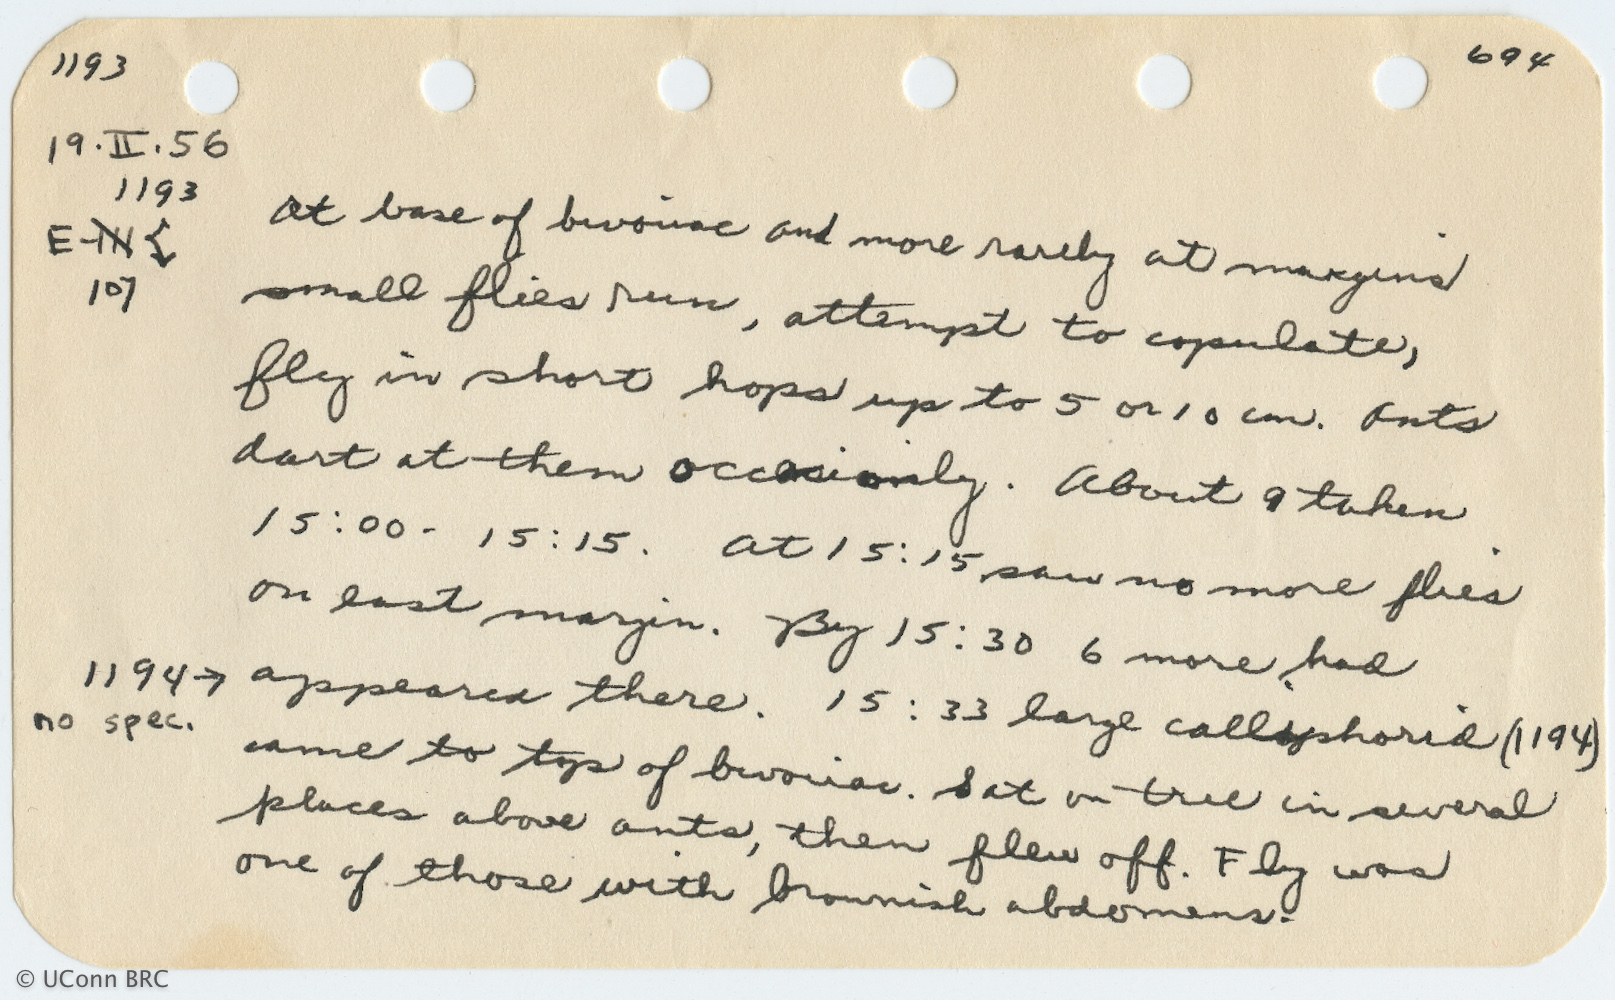 1193
694
19.II.56
1193
E-IN
107
At base of bivouac and more rarely at margins
small flies run, attempt to copulate,
fly in short hops up to 5 or 10 cm. Ants
dart at them occasionly. About 9 taken
15:00 - 15:15. At 15:15 saw no more flies
on east margin. By 15:30 6 more had
1194→ appeared there. 15:33 large calliphorid (1194)
no spec.
came to top of bivouac. Sat on tree in several
places above ants, then flew off. Fly was
one of those with brownish abdomens.
© UConn BRC